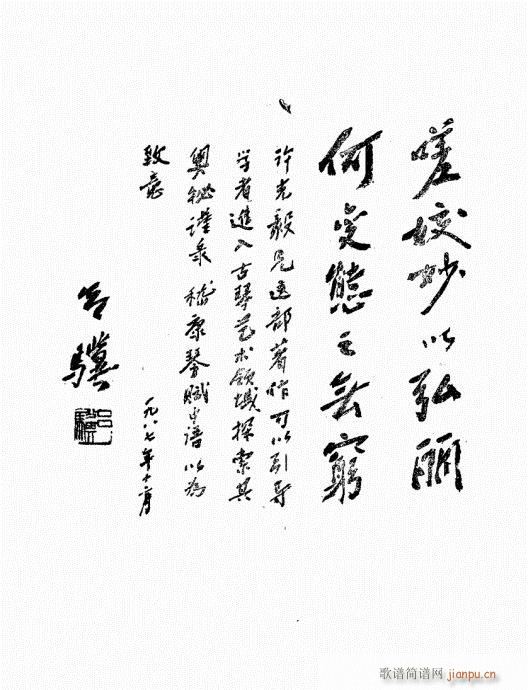 嗟姣妙以弘丽
何变態之无窮
许光毅兄这部著作可以引导
学者進入古琴艺术领域探索其
奥秘谨录嵇康琴赋中语以为
致意
吕骥
一九八七年十二月
歌谱简谱网 jianpu.cn